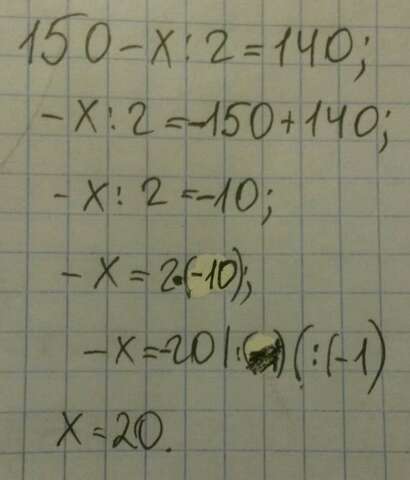 150-x:2=140;
-x:2=-150+140;
-x:2=-10;
-x=2·(-10);
-x=-20|:() (:(-1)
x=20.